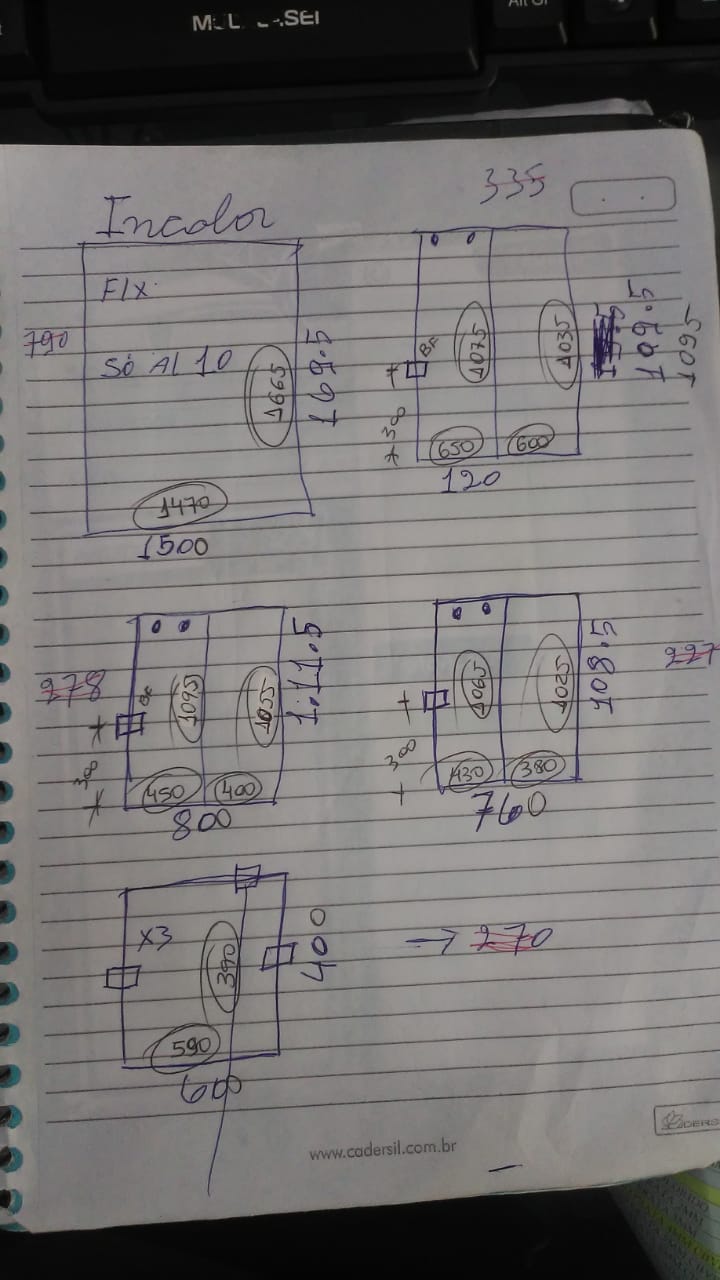 Alt Gr
335
Incolor
FIX.
790
Só Al 10
1665
169.5
1470
1500
BR
1075
1035
109.5
1095
300
650
600
120
278
BR
1095
1055
1.11.5
300
450
400
800
1065
1025
108.5
227
300
430
380
760
X3
390
400
→ 270
590
60
www.cadersil.com.br